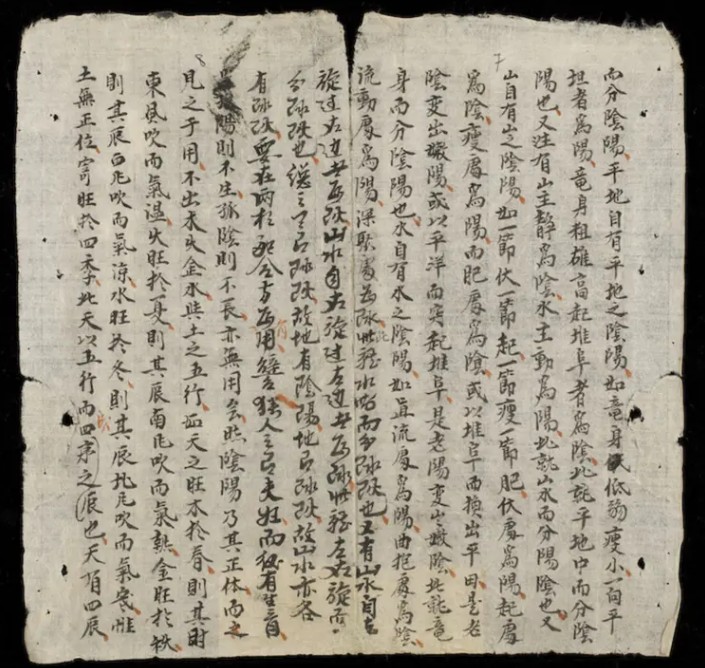 而分陰陽平地自有平地之陰陽如竜身低弱瘦小一向平
坦者爲陽竜身粗雄高起堆阜者爲陰此就平地中而分陰
陽也又註有山主静爲陰水主動爲陽此就山水而分陽陰也又
山自有山之陰陽如一節伏一節起一節瘦一節肥伏處爲陽起處
爲陰瘦處爲陽而肥處爲陰或以堆阜而摸出平田是老
陰变出嫩陽或以平洋而突起堆阜是老陽变出嫩陰此就竜
身而分陰陽也水自有水之陰陽如直流處爲陽曲抱處爲陰
流動處爲陽深聚處爲陰此就水而分陰陽也又有山水自右
旋过左边者為山水自左旋过右边者為此左右旋而
分也總之天有地有陰陽地有故山水亦各
有要在兩相配合方爲用譬猶人之有夫妇而後有生育
陽則不生孤陰則不長亦無用矣然陰陽乃其正体而
見之于用不出木火金水與土之五行如天之旺木於春則其时
東風吹而氣温火旺於夏則其辰南风吹而氣熱金旺於秋
則其辰西风吹而氣凉水旺於冬則其辰北风吹而氣寒惟
土無正位寄旺於四季此天以五行而四序之辰也天有四辰